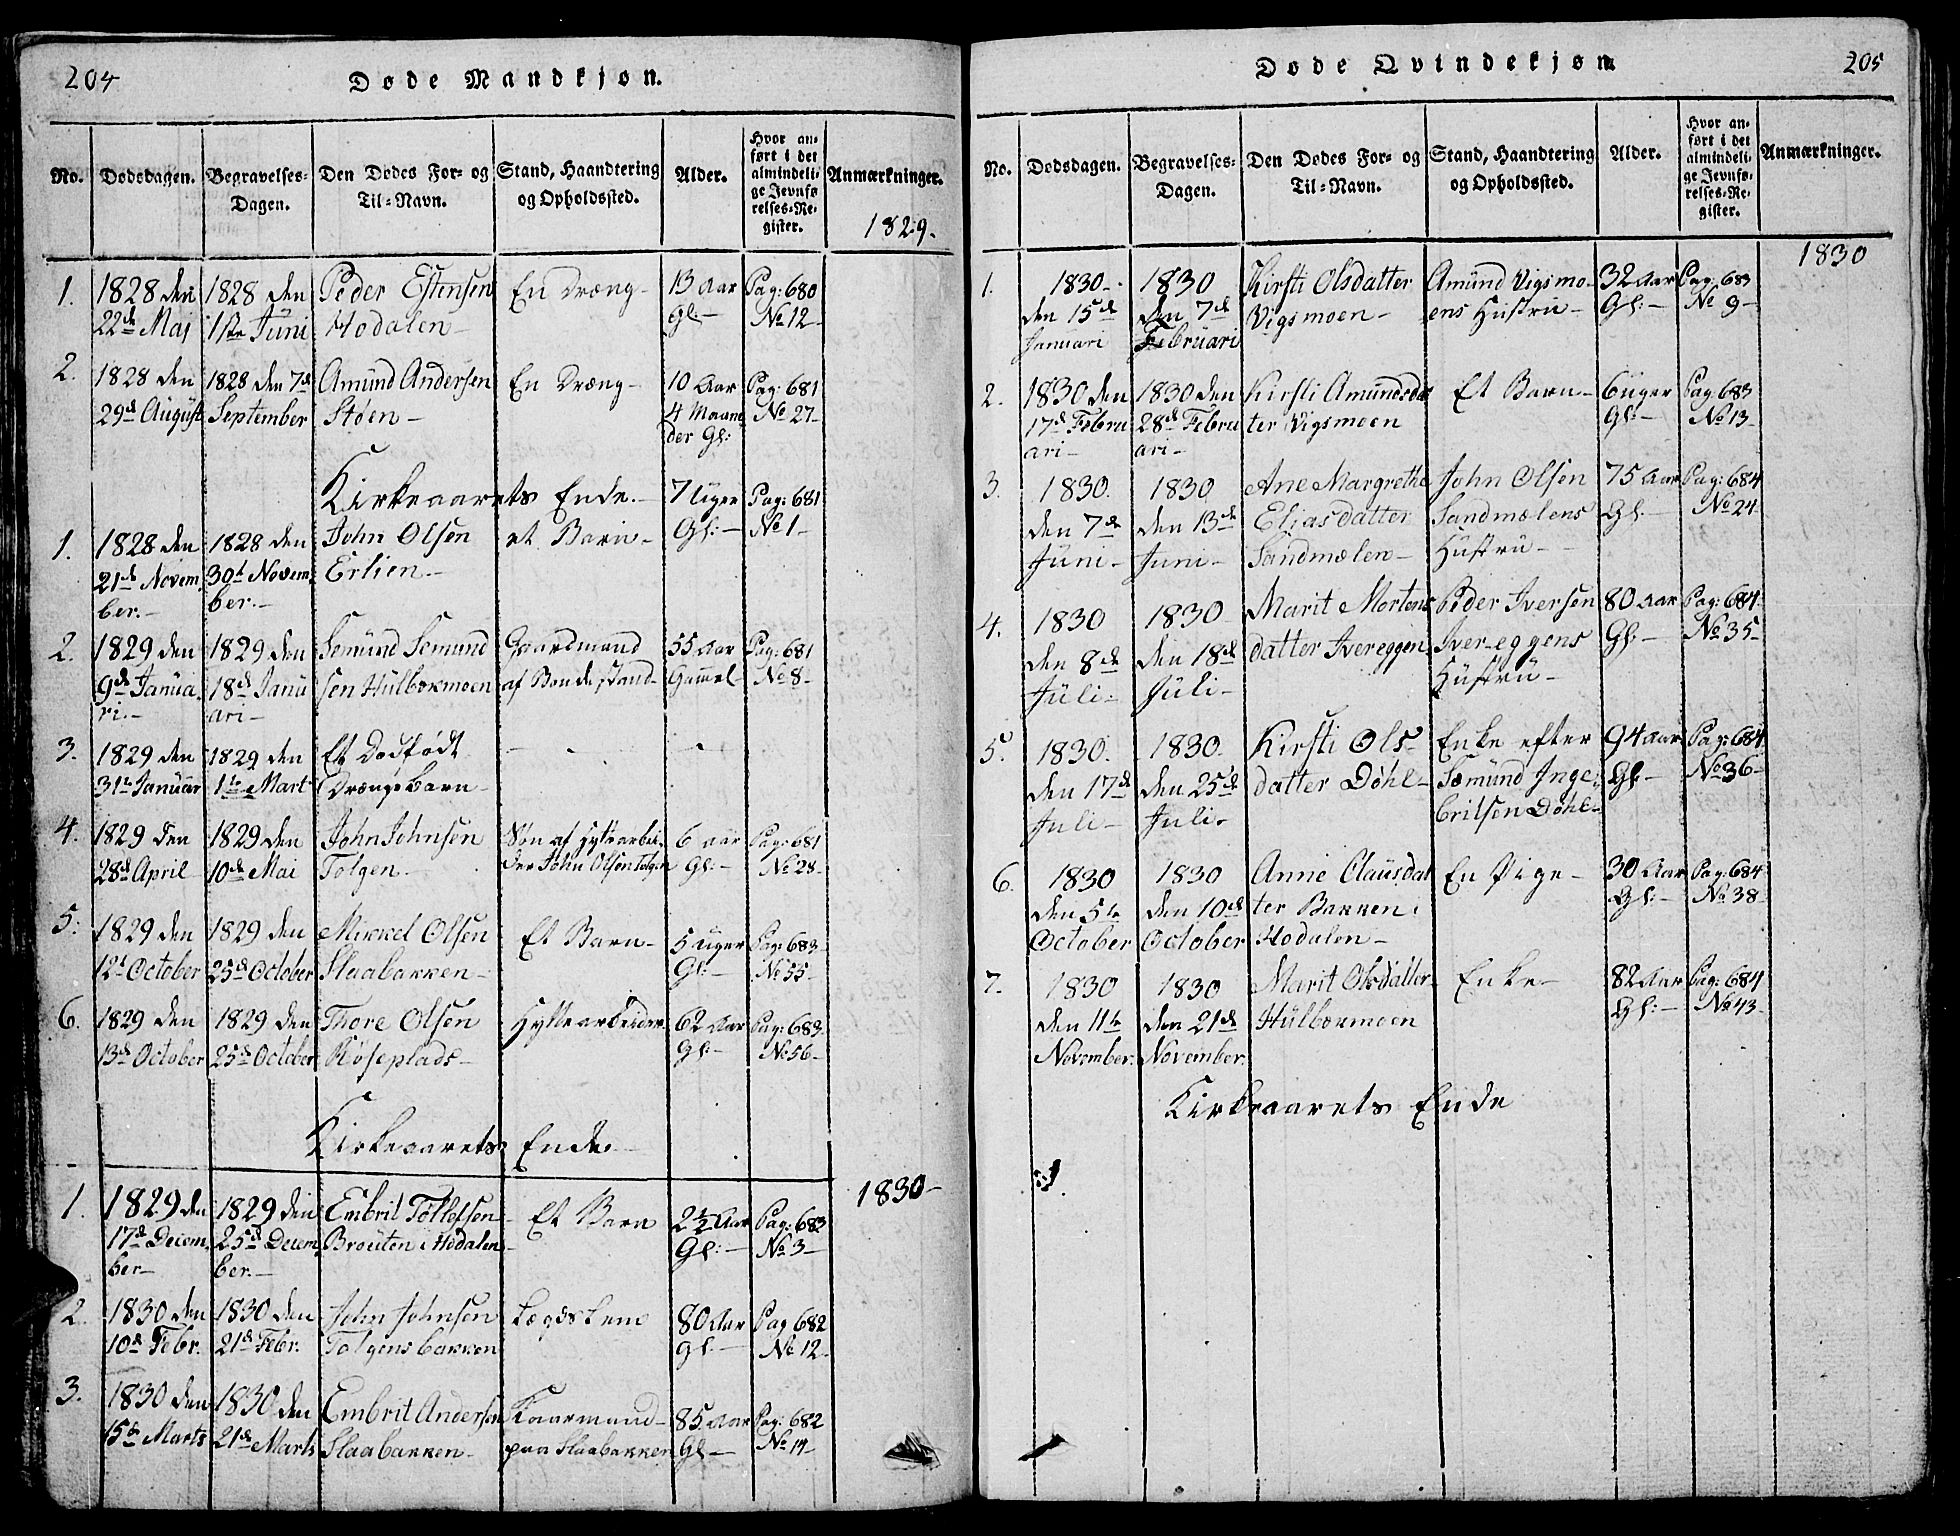 204
Døde Mandkjøn.
No.
Dødsdagen.
Begravelses-
Dagen.
Den Dødes For- og
Til-Navn.
Stand, Haandtering
og Opholdssted.
Alder.
Hvor an-
ført i det
almindeli-
ge Jevnfø-
relses-Re-
gister.
Anmærkninger.
1829.
1.
1828 den
22de Maj
1828 den
1ste Juni
Peder Estensen
Hodalen
En Dræng
13 Aar
Gl:
Pag: 680
No 12
2.
1828 den
29de August
1828 den 7de
September
Amund Andersen
Støen
En Dræng
10 Aar
4 Maane
der Gl:
Pag: 681
No 27
Kirkeaarets Ende.
1.
1828 den
21de Novem
ber.
1828 den
30te Novem
ber.
John Olsen
Erlien
et Barn
7 Uger
Gl:
Pag: 681
No 1
2.
1829 den
9de Janua
ri.
1829 den
18de Janu
ari
Semund Semund
sen Hulbækmoen
Gaardmand
af Bondestand
55 Aar
Gammel
Pag: 681
No 8
3.
1829 den
31te Januar
1829 den
1te Mart
Et Dødfødt
Drængebarn
4.
1829 den
28de April
1829 den
10de Mai
John Johnsen
Tolgen
Søn af Hyttearbei
der John Olsen Tolgen
6 aar
Gl:
Pag: 681
No 28
5.
1829 den
12te October
1829 den
25de October
Mikkel Olsen
Slaabakken
Et Barn
5 Uger
Gl:
Pag: 683
No 55
6.
1829 den
13de October
1829 den
25de October
Thore Olsen
Røseplads
Hyttearbeider
62 Aar
Gl:
Pag: 683
No 56
Kirkeaarets Ende
1830
1.
1829 den
17de Decem
ber
1829 den
25de Decem
ber.
Embrit Tollefsen
Brouten i Hodalen
Et Barn
2½ Aar
Gl:
Pag: 683
No 3
2.
1830 den
10de Febr.
1830 den
21de Febr.
John Johnsen
Tolgensbakken
Lægdslem
80 Aar
gl:
Pag 682
No 12
3.
1830 den
15te Marts
1830 den
21de Marts
Embrit Andersen
Slaabakken
Kaarmand
paa Slaabakken
85 Aar
Gl
Pag: 682
No 14
205
Døde Qvindekjøn
No.
Dødsdagen.
Begravelses-
Dagen.
Den Dødes For- og
Til-Navn.
Stand, Haandtering
og Opholdssted.
Alder.
Hvor an-
ført i det
almindeli-
ge Jevnfø-
relses-Re-
gister.
Anmærkninger.
1830
1.
1830
den 15de
Januari
1830
den 7de
Februari
Kirsti Olsdatter
Vigsmoen
Amund Vigsmo-
ens Hustru
32 Aar
Gl:
Pag: 683
No 9
2.
1830 den
17de Febru
ari
1830 den
28de Febru
ari
Kirsti Amundsda
ter Vigsmoen
Et Barn
6 uger
Gl:
Pag 683
No 13
3.
1830.
den 7de
Juni
1830
den 13de
Juni
Ane Margrethe
Eliasdatter
Sandmælen
John Olsen
Sandmælens
Hustru
75 Aar
Gl.
Pag: 684
No 24
4.
1830
den 8de
Juli
1830
den 18de
Juli
Marit Mortens
datter Ivereggen
Peder Iversen
Ivereggens
Hustru
80 Aar
Gl:
Pag: 684
No 35
5.
1830.
den 17de
Juli
1830.
den 25de
Juli
Kirsti Ols-
datter Døhl
Enke efter
Sæmund Inge
britsen Døhl
94 Aar
Gl
Pag: 684
No 36
6.
1830
den 5te
October
1830
den 10de
October
Anne Clausdat
ter Bakken i
Hodalen
En Pige
30 Aar
Gl:
Pag: 684
No 38
7.
1830
den 11te
November
1830
den 21de
November
Marit Olsdatter
Hulbækmoen
Enke
82 Aar
Gl:
Pag: 684
No 43
Kirkeaarets Ende